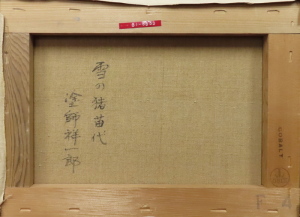 雪の猪苗代
塗師祥一郎
F4